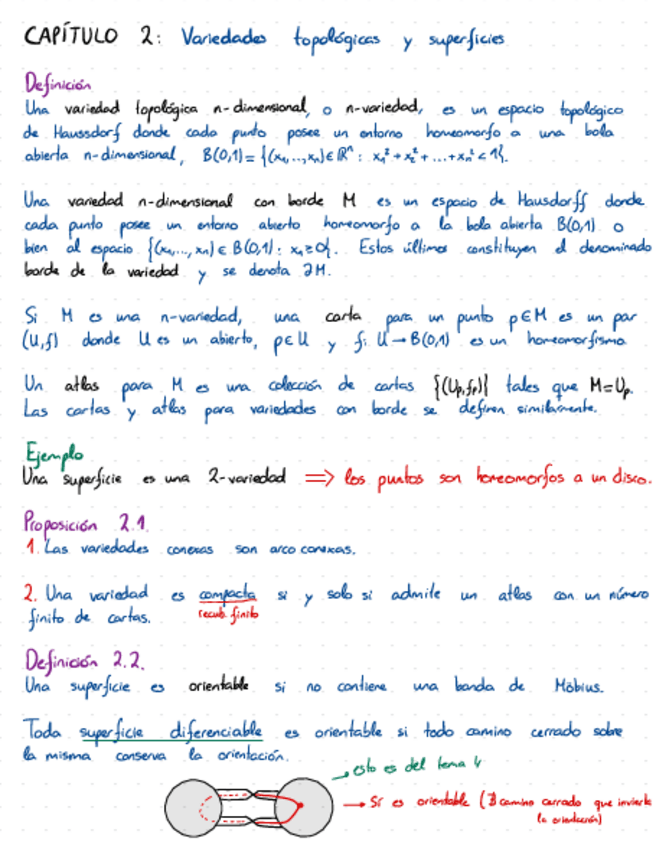 CAPÍTULO 2: Variedades topológicas y superficies
Definición
Una variedad topológica n-dimensional, o n-variedad, es un espacio topológico
de Haussdorf donde cada punto posee un entorno homeomorfo a una bola
abierta n-dimensional, B(0,1) = {(x₁,...,xₙ) ∈ ℝⁿ : x₁² + x₂² + ... + xₙ² < 1}.
Una variedad n-dimensional con borde M es un espacio de Hausdorff donde
cada punto posee un entorno abierto homeomorfo a la bola abierta B(0,1) o
bien al espacio {(x₁,...,xₙ) ∈ B(0,1) : x₁ ≥ 0}. Estos últimos constituyen el denominado
borde de la variedad y se denota ∂M.
Si M es una n-variedad, una carta para un punto p∈M es un par
(U,f) donde U es un abierto, p∈U y f: U → B(0,1) es un homeomorfismo
Un atlas para M es una colección de cartas {(Up,fp)} tales que M=Up.
Las cartas y atlas para variedades con borde se definen similarmente.
Ejemplo
Una superficie es una 2-variedad ⟹ los puntos son homeomorfos a un disco.
Proposición 2.1.
1. Las variedades conexas son arco conexas.
2. Una variedad es compacta si y solo si admite un atlas con un número
finito de cartas. recub. finito
Definición 2.2.
Una superficie es orientable si no contiene una banda de Möbius.
Toda superficie diferenciable es orientable si todo camino cerrado sobre
la misma conserva la orientación.
→ esto es del tema 4
→ Sí es orientable (∄ camino cerrado que invierte
la orientación)